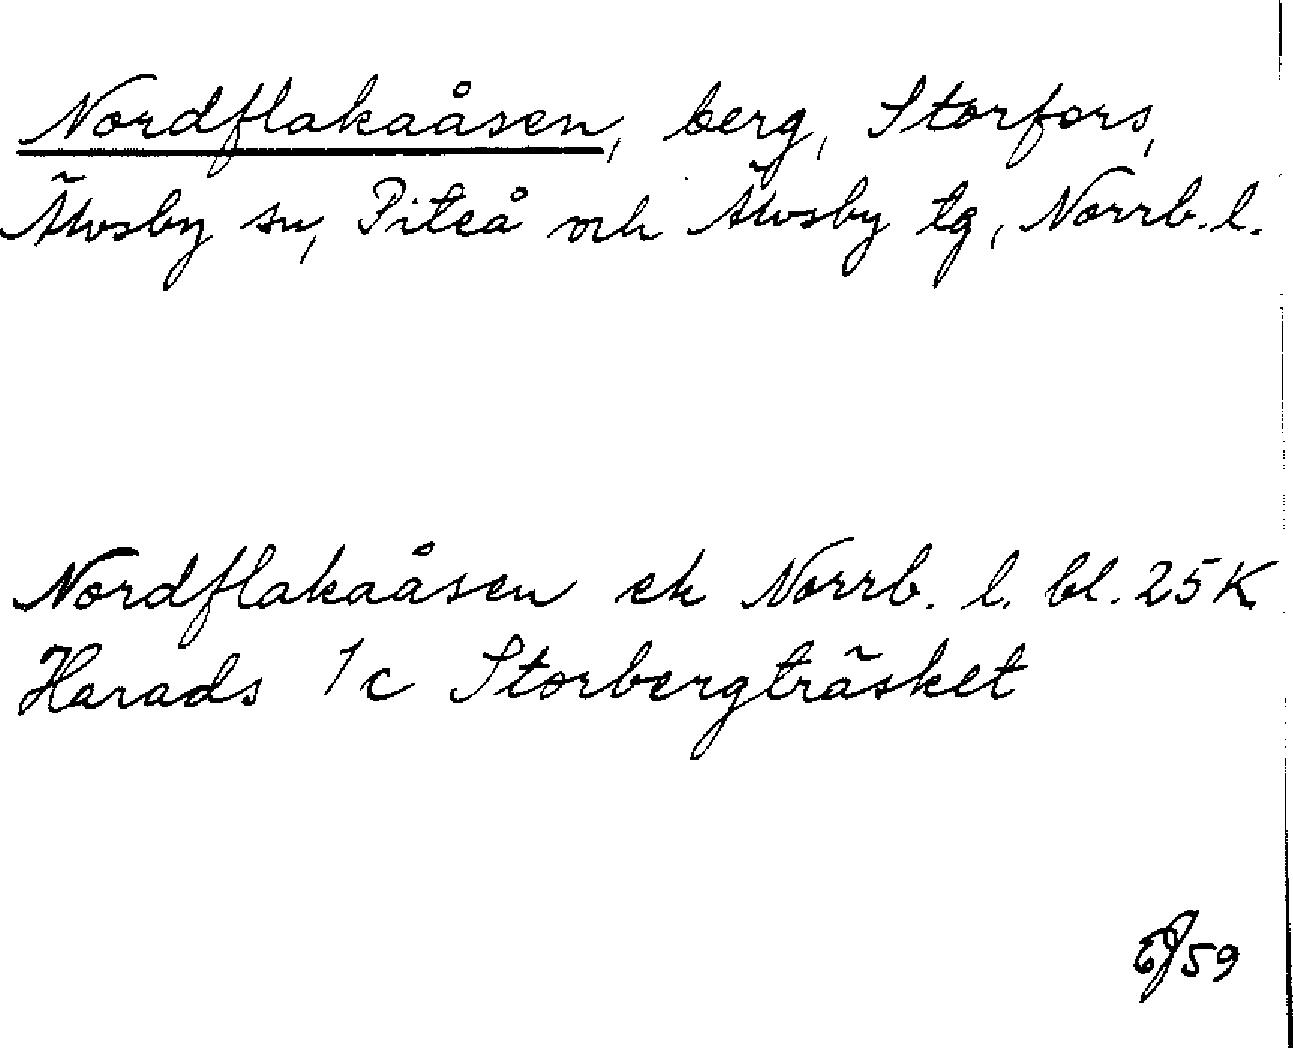 Nordflakaåsen, berg, Storfors,
Älvsby sn, Piteå och Älvsby tg, Norrb. l.
Nordflakaåsen ek Norrb. l. bl. 25K
Harads 1c Storbergträsket
59